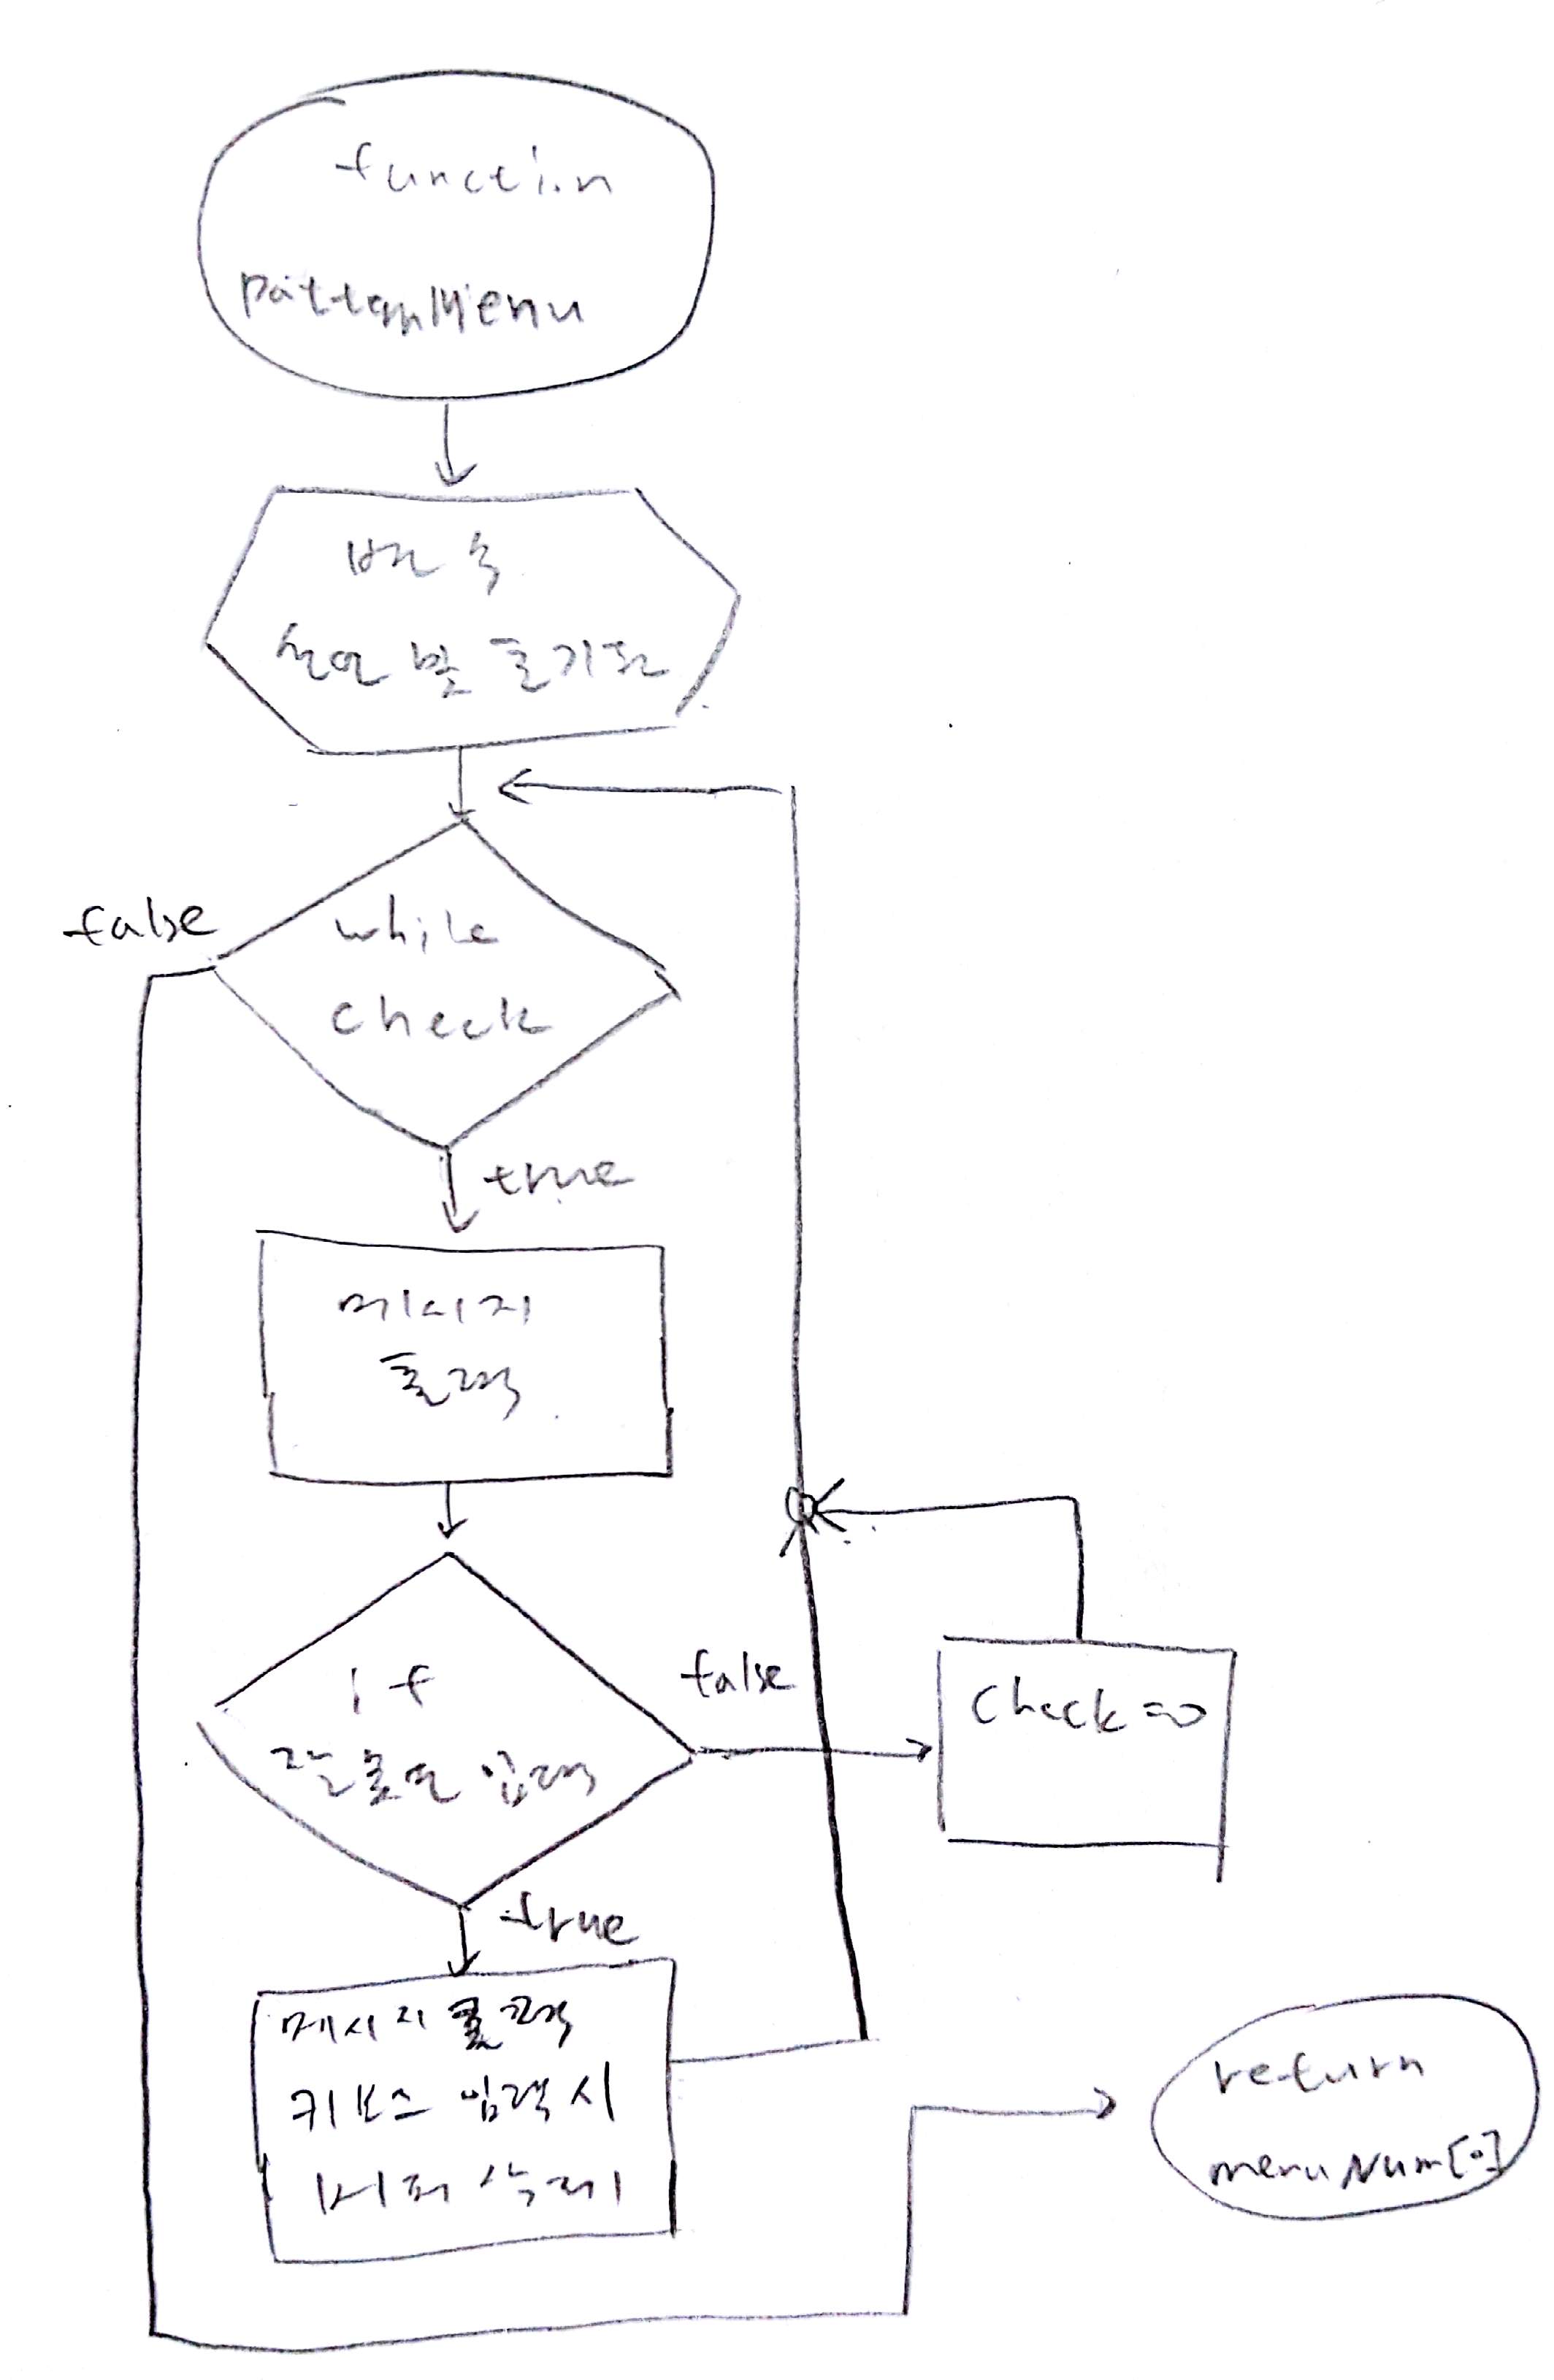 function
patternMenu
변수
선언 및 초기화
false
while
check
true
메시지
출력
if
잘못된 입력
false
check=0
true
메시지 출력
키보드 입력 시
버퍼 삭제
return
menuNum[0]